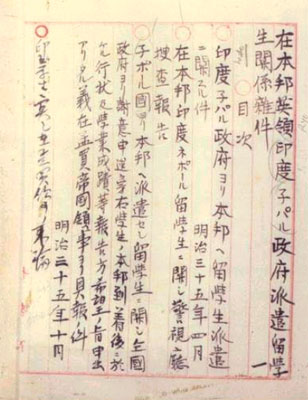 在本邦英領印度子パル政府派遣留学
生関係雑件
一
目次
印度子パル政府ヨリ本邦ヘ留学生派遣
ニ関スル件 明治三十五年四月
在本邦印度ネポール留学生ニ関シ警視庁
捜査報告
子ポール国ヨリ本邦ヘ派遣セシ留学生ニ関シ同国
政府ヨリ謝意申送
右学生本邦到着後ニ於
ケル行状及学業成蹟等報告方希望ノ旨申出
アリタル義在孟買帝国領事ヨリ具報ノ件
明治三十五年十月